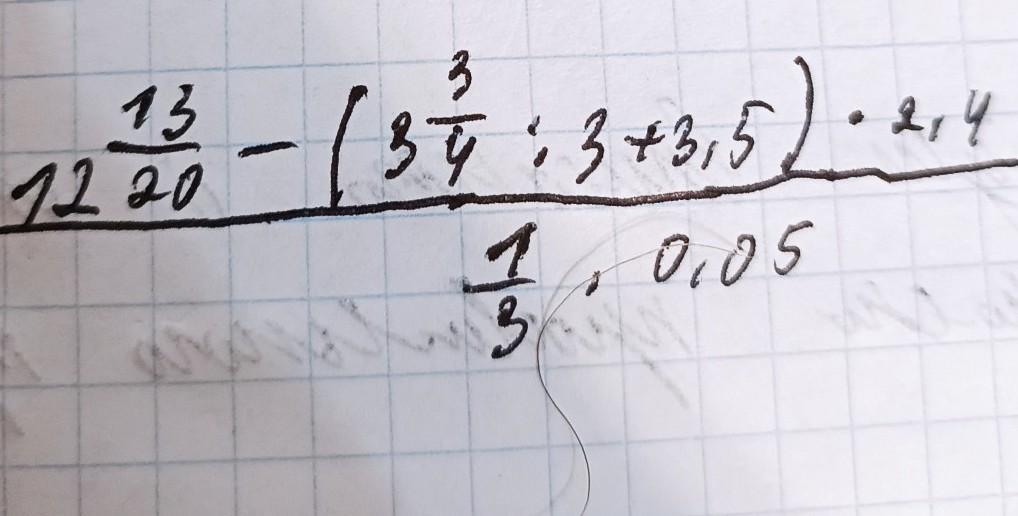 12 13/20 - (3 3/4 : 3 + 3,5) · 2,4
1/3 · 0,05